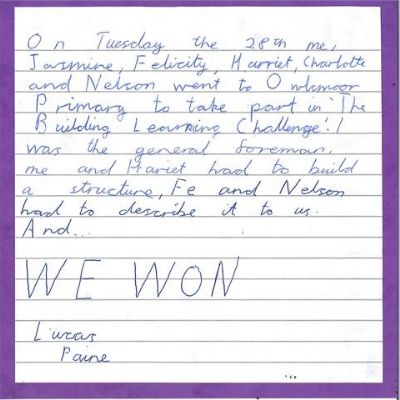 On Tuesday the 28th me,
Jasmine, Felicity, Harriet, Charlotte
and Nelson went to Owlsmoor
Primary to take part in 'The
Building Learning Challenge'. I
was the general foreman,
me and Harriet had to build
a structure, Fe and Nelson
had to describe it to us.
And...
WE WON
Lucas
Paine
...